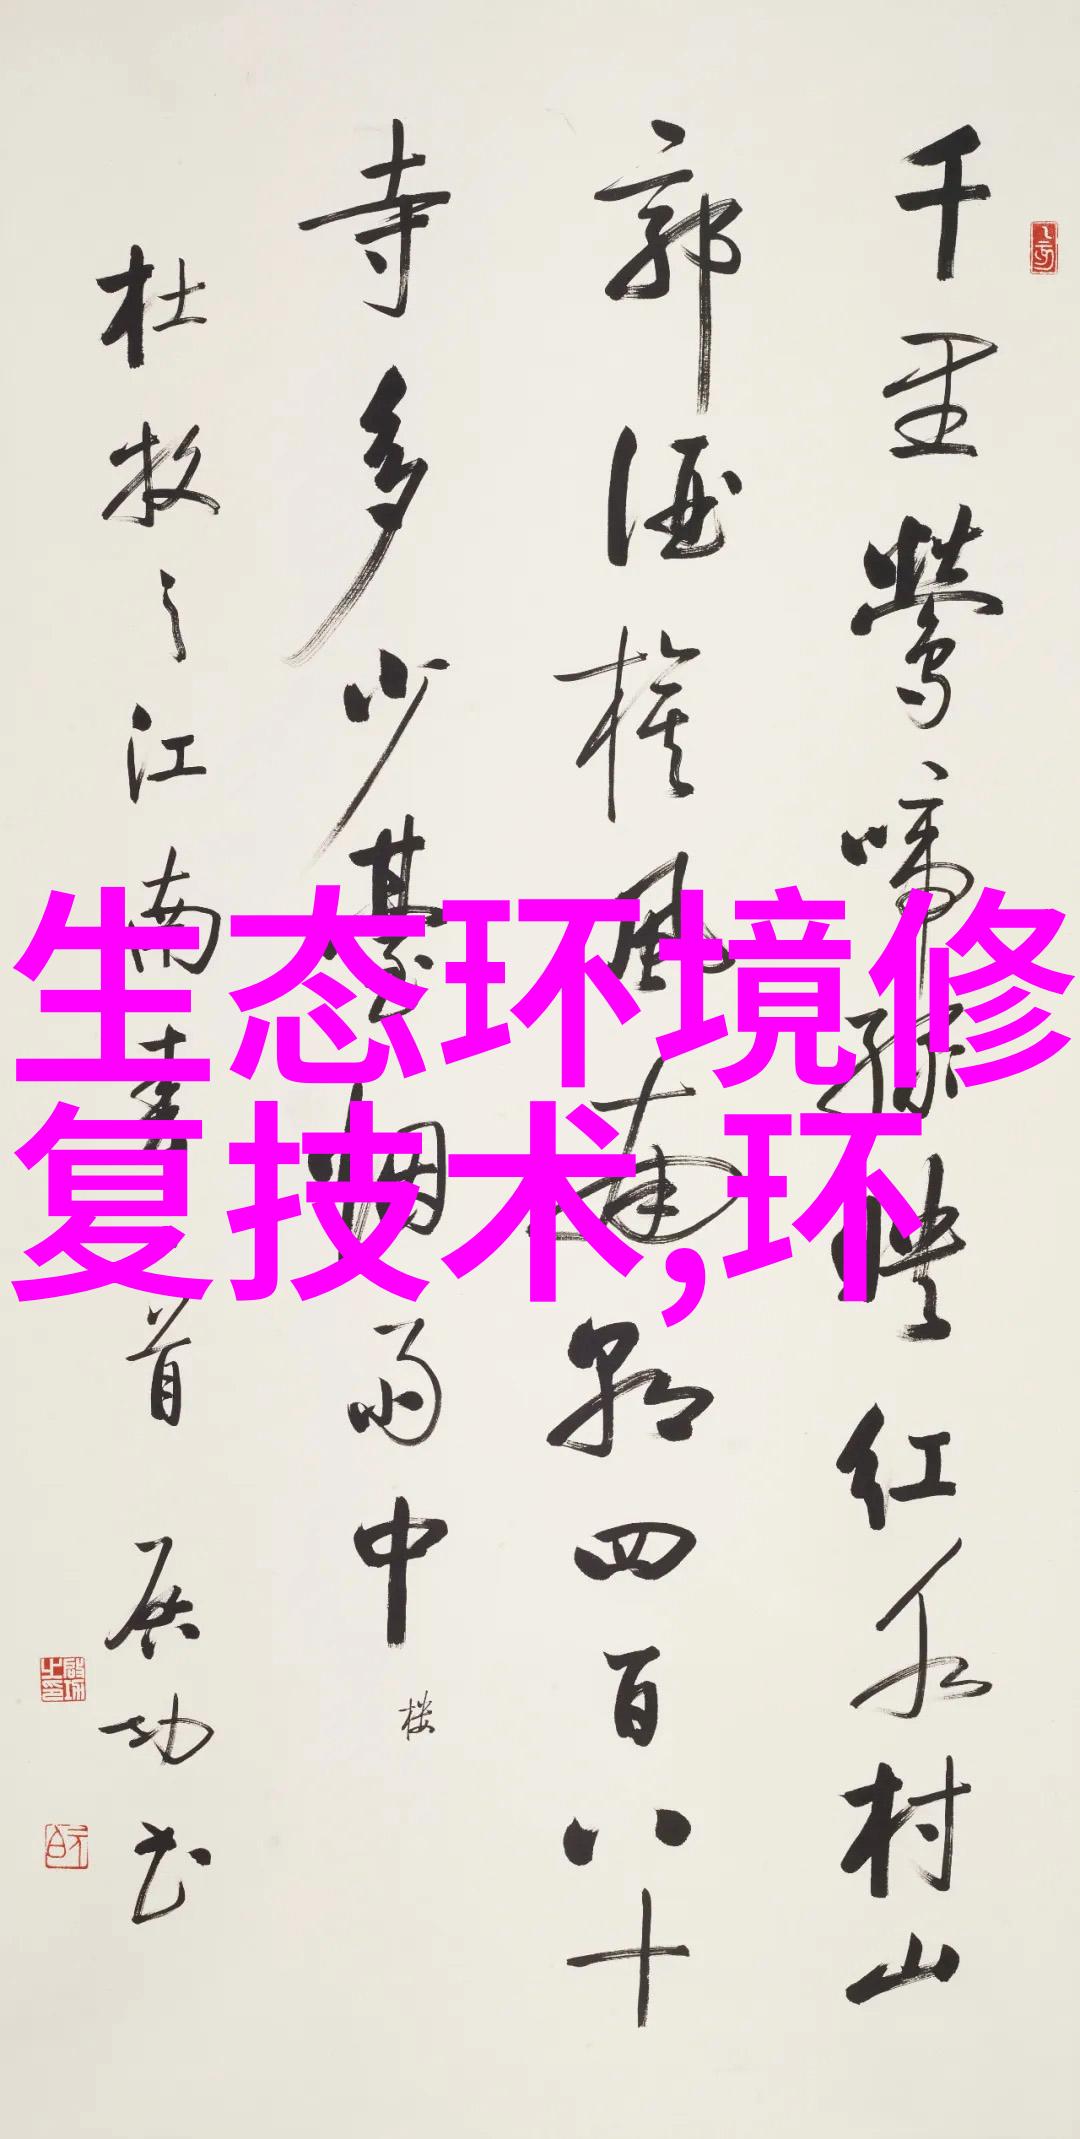 千里鶯啼綠映紅水村山
郭酒旗風南朝四百八十
寺多少臺烟雨中
楼
杜牧之江南春首 启功书
生态环境修
复技术,环